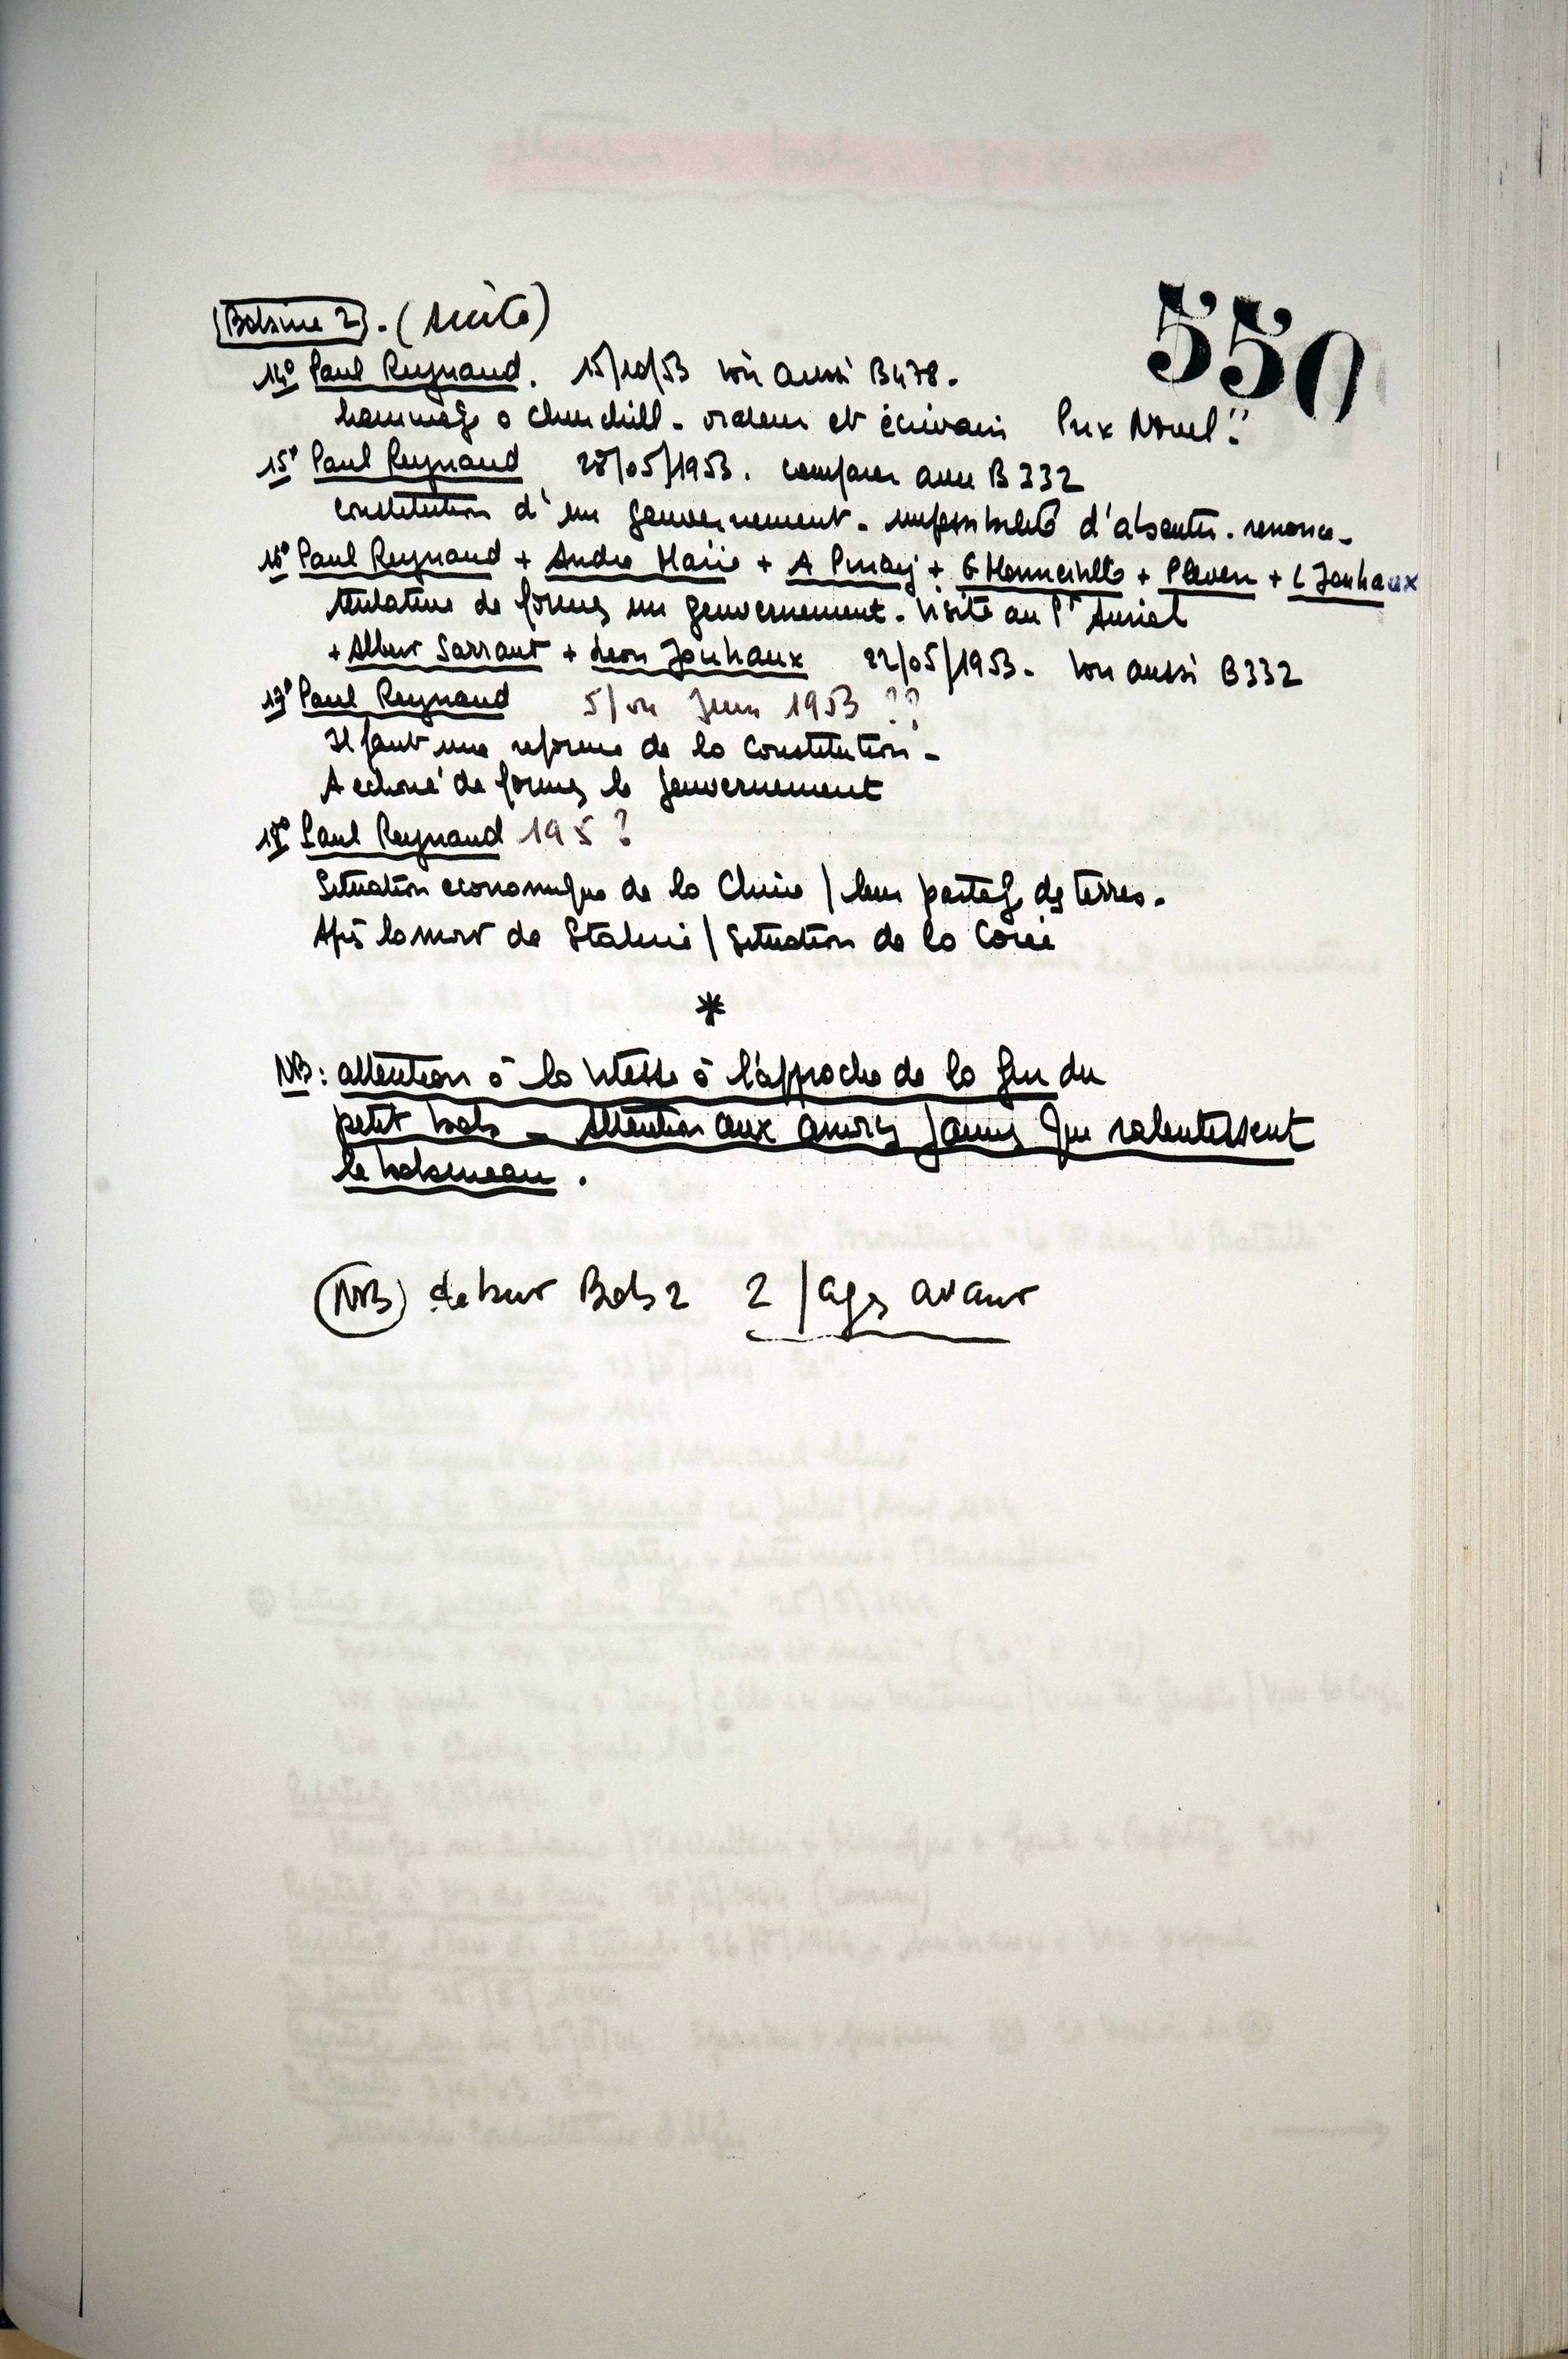 Bobine 2. (suite)
550
14° Paul Reynaud. 15/10/53 voir aussi B478.
hommage a Churchill - orateur et écrivain Prix Nobel.
15° Paul Reynaud 28/05/1953. comparer avec B 332
constitution d'un gouvernement - impossibilité d'aboutir. renonce -
16° Paul Reynaud + Andre Marie + A Pinay + G Monnerville + Pleven + L Jouhaux
tentative de former un gouvernement. Visite au Pt Auriol
+ Albert Sarraut + Leon Jouhaux 22/05/1953. Voir aussi B332
17° Paul Reynaud 5/ou Juin 1953 ??
Il faut une reforme de la Constitution -
A echoué de former le gouvernement
18° Paul Reynaud 195 ?
Situation economique de la Chine / leur partage des terres.
Après la mort de Staline / Situation de la Corée
*
NB: attention à la vitesse à l'approche de la fin du
petit bob - Attention aux jaunes qui ralentissent
le bobineau.
NB debut Bob 2 2 pages avant